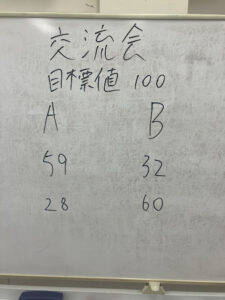 交流会
目標値 100
A B
59 32
28 60